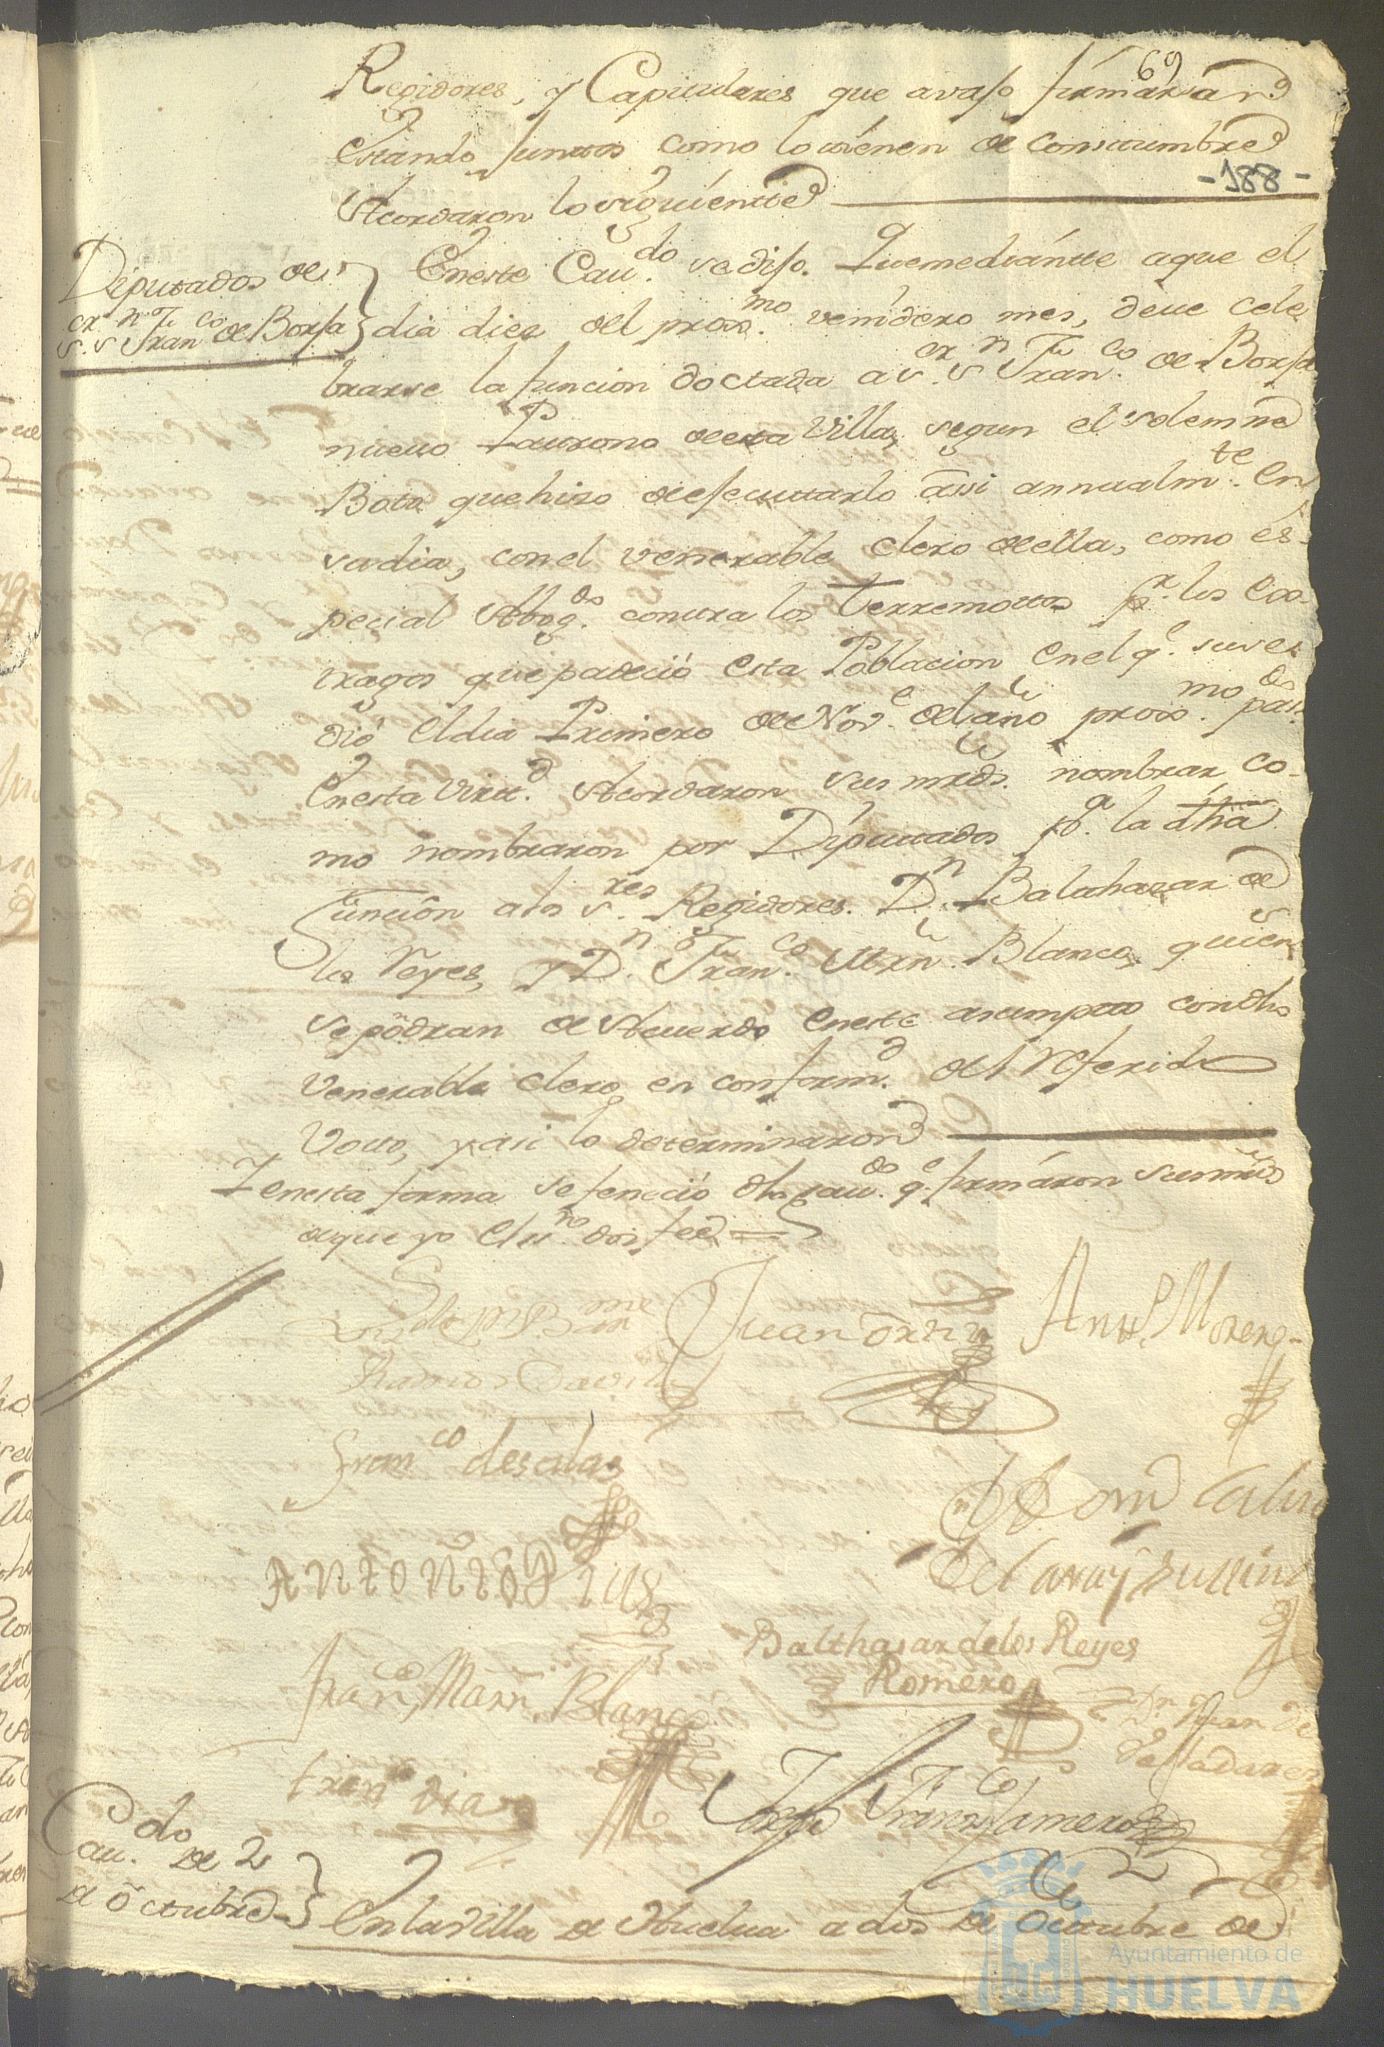 69
Regidores, y Capitulares que avajo firmarán
estando juntos como lo tiénen de constumbre
-188-
Acordaron lo siguiente
Diputados de
Sr. Sn. Franco. de Borja
Eneste Cavdo. se dijo. Que mediánte a que el
dia diez del proxmo. venidero mes, deve cele
brarse la funcion doctada a Sr. Sn. Franco. de Borja
nuevo Patrono de esta Villa, segun el solemne
Boto que hizo de ejecutarlo assi annualmte. en
su dia, con el venerable Clero de ella, como es-
pecial Abogdo. contra los terremotos pr. los Es-
tragos que padeció esta Poblacion en el q. suce
dió el dia Primero de Nove. del año proxmo. pasdo.
En esta virtd. Acordaron sus mrds. nombrar co-
mo nombraron por Diputados pa. la dha
función a los Sres. Regidores Dn. Balthazar de
los Reyes, y Dn. Franco. Mrn. Blanco, quiens
se podran de Acuerdo en este asumpto con dho
Venerable Clero en conformd. del Referido
Voto, y asi lo determinaron
Y en esta forma se feneció dho cavdo. q. firmáron sus mrds
de que yo el ssno. doi fee
Juan Ortiz
Anto. Moreno
Ramos Davila
Franco de salas
Antonio
Balthasar de los Reyes
Romero
Franco. Marn. Blanco
Dn. Juan de
Valladares
Franco Dias
Jorje Franco Jamero
Cavdo. de 2
de Octubre
En la Villa de Huelva a dos de Octubre de
Ayuntamiento de
HUELVA